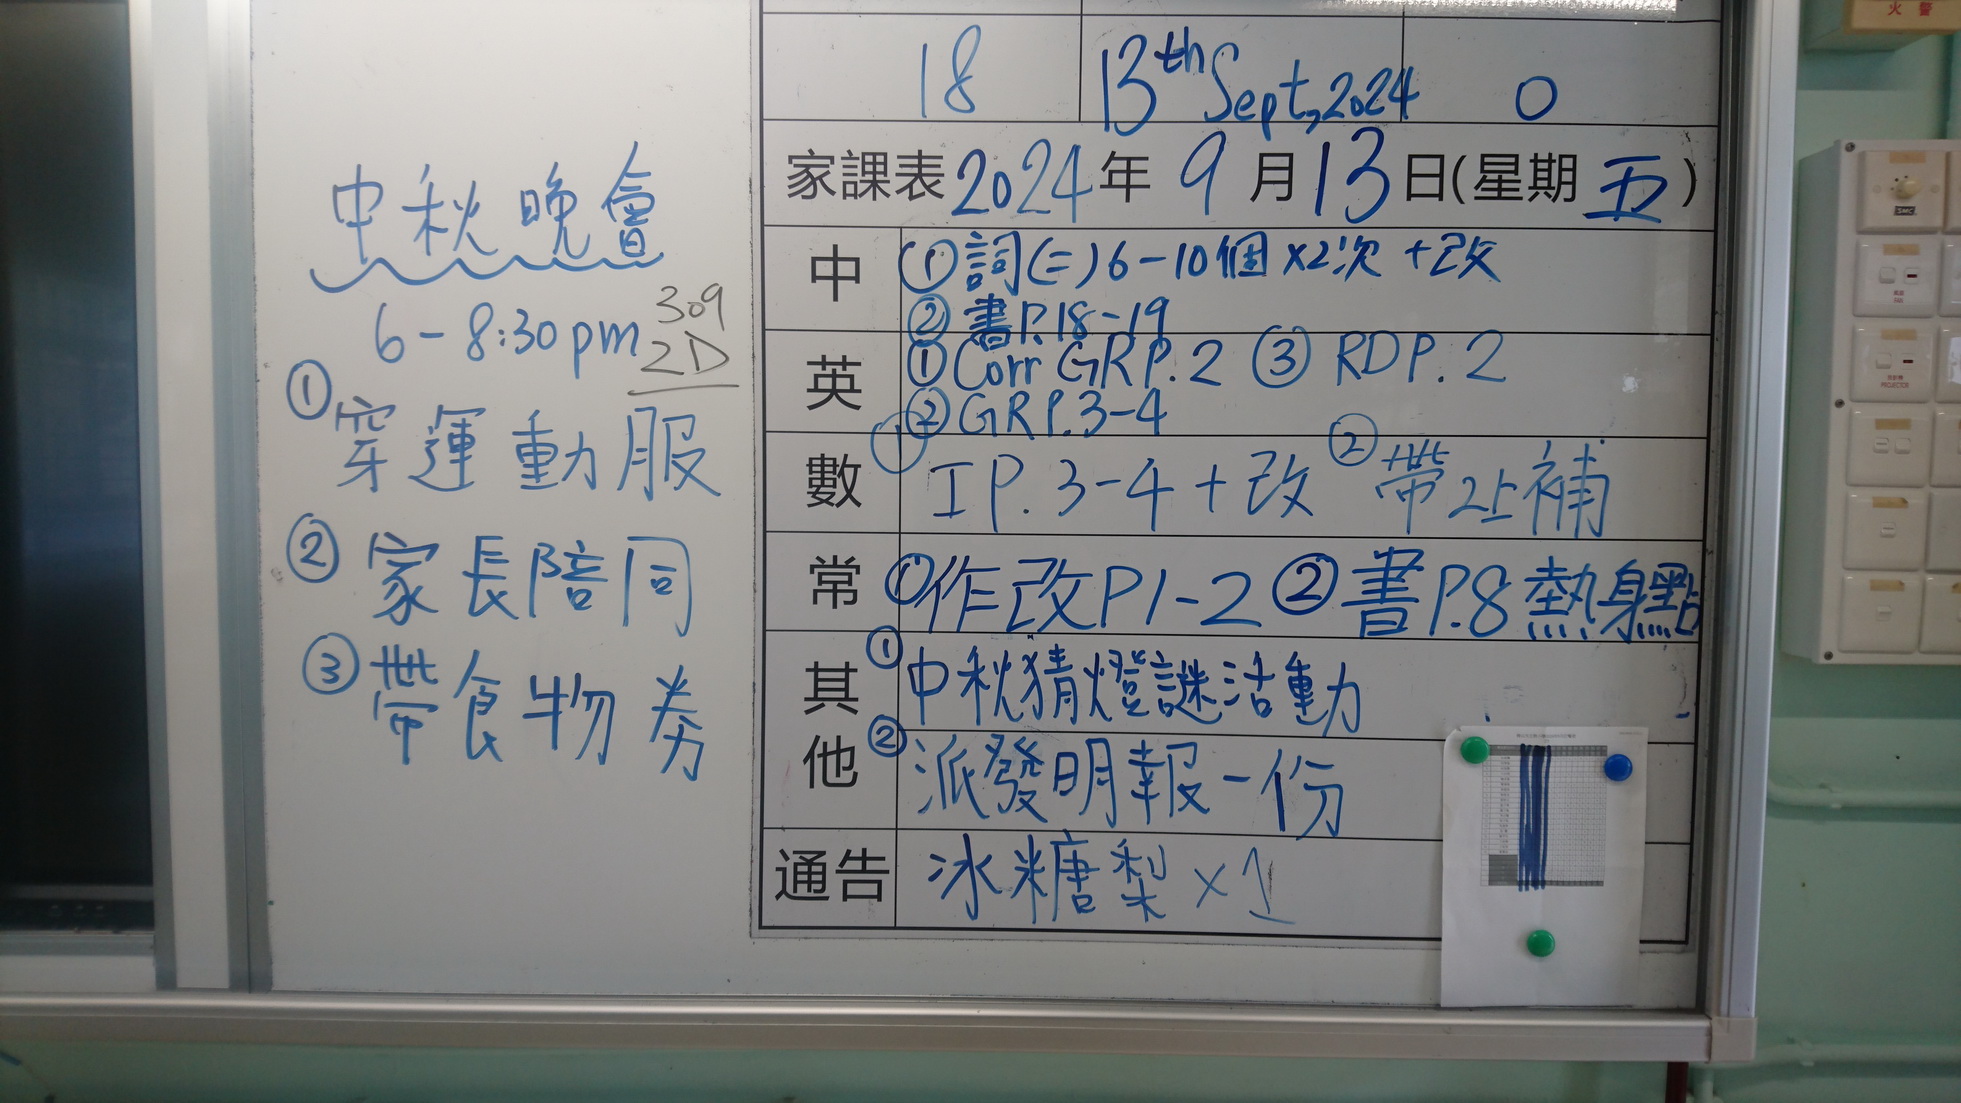 中秋晚會
6-8:30pm
309
2D
① 穿運動服
② 家長陪同
③ 帶食物券
18 13th Sept, 2024 0
家課表 2024年 9月13日(星期五)
中 ①詞(二)6-10個×2次 +改
②書P.18-19
英 ①Corr GRP.2 ③ RDP.2
②GRP.3-4
數 ① IP.3-4+改 ②帶 補
常 ①作改P1-2 ②書P.8熱身點
其他 ①中秋猜燈謎活動
②派發明報一份
通告 冰糖梨×1
火警
SMC
PROJECTOR